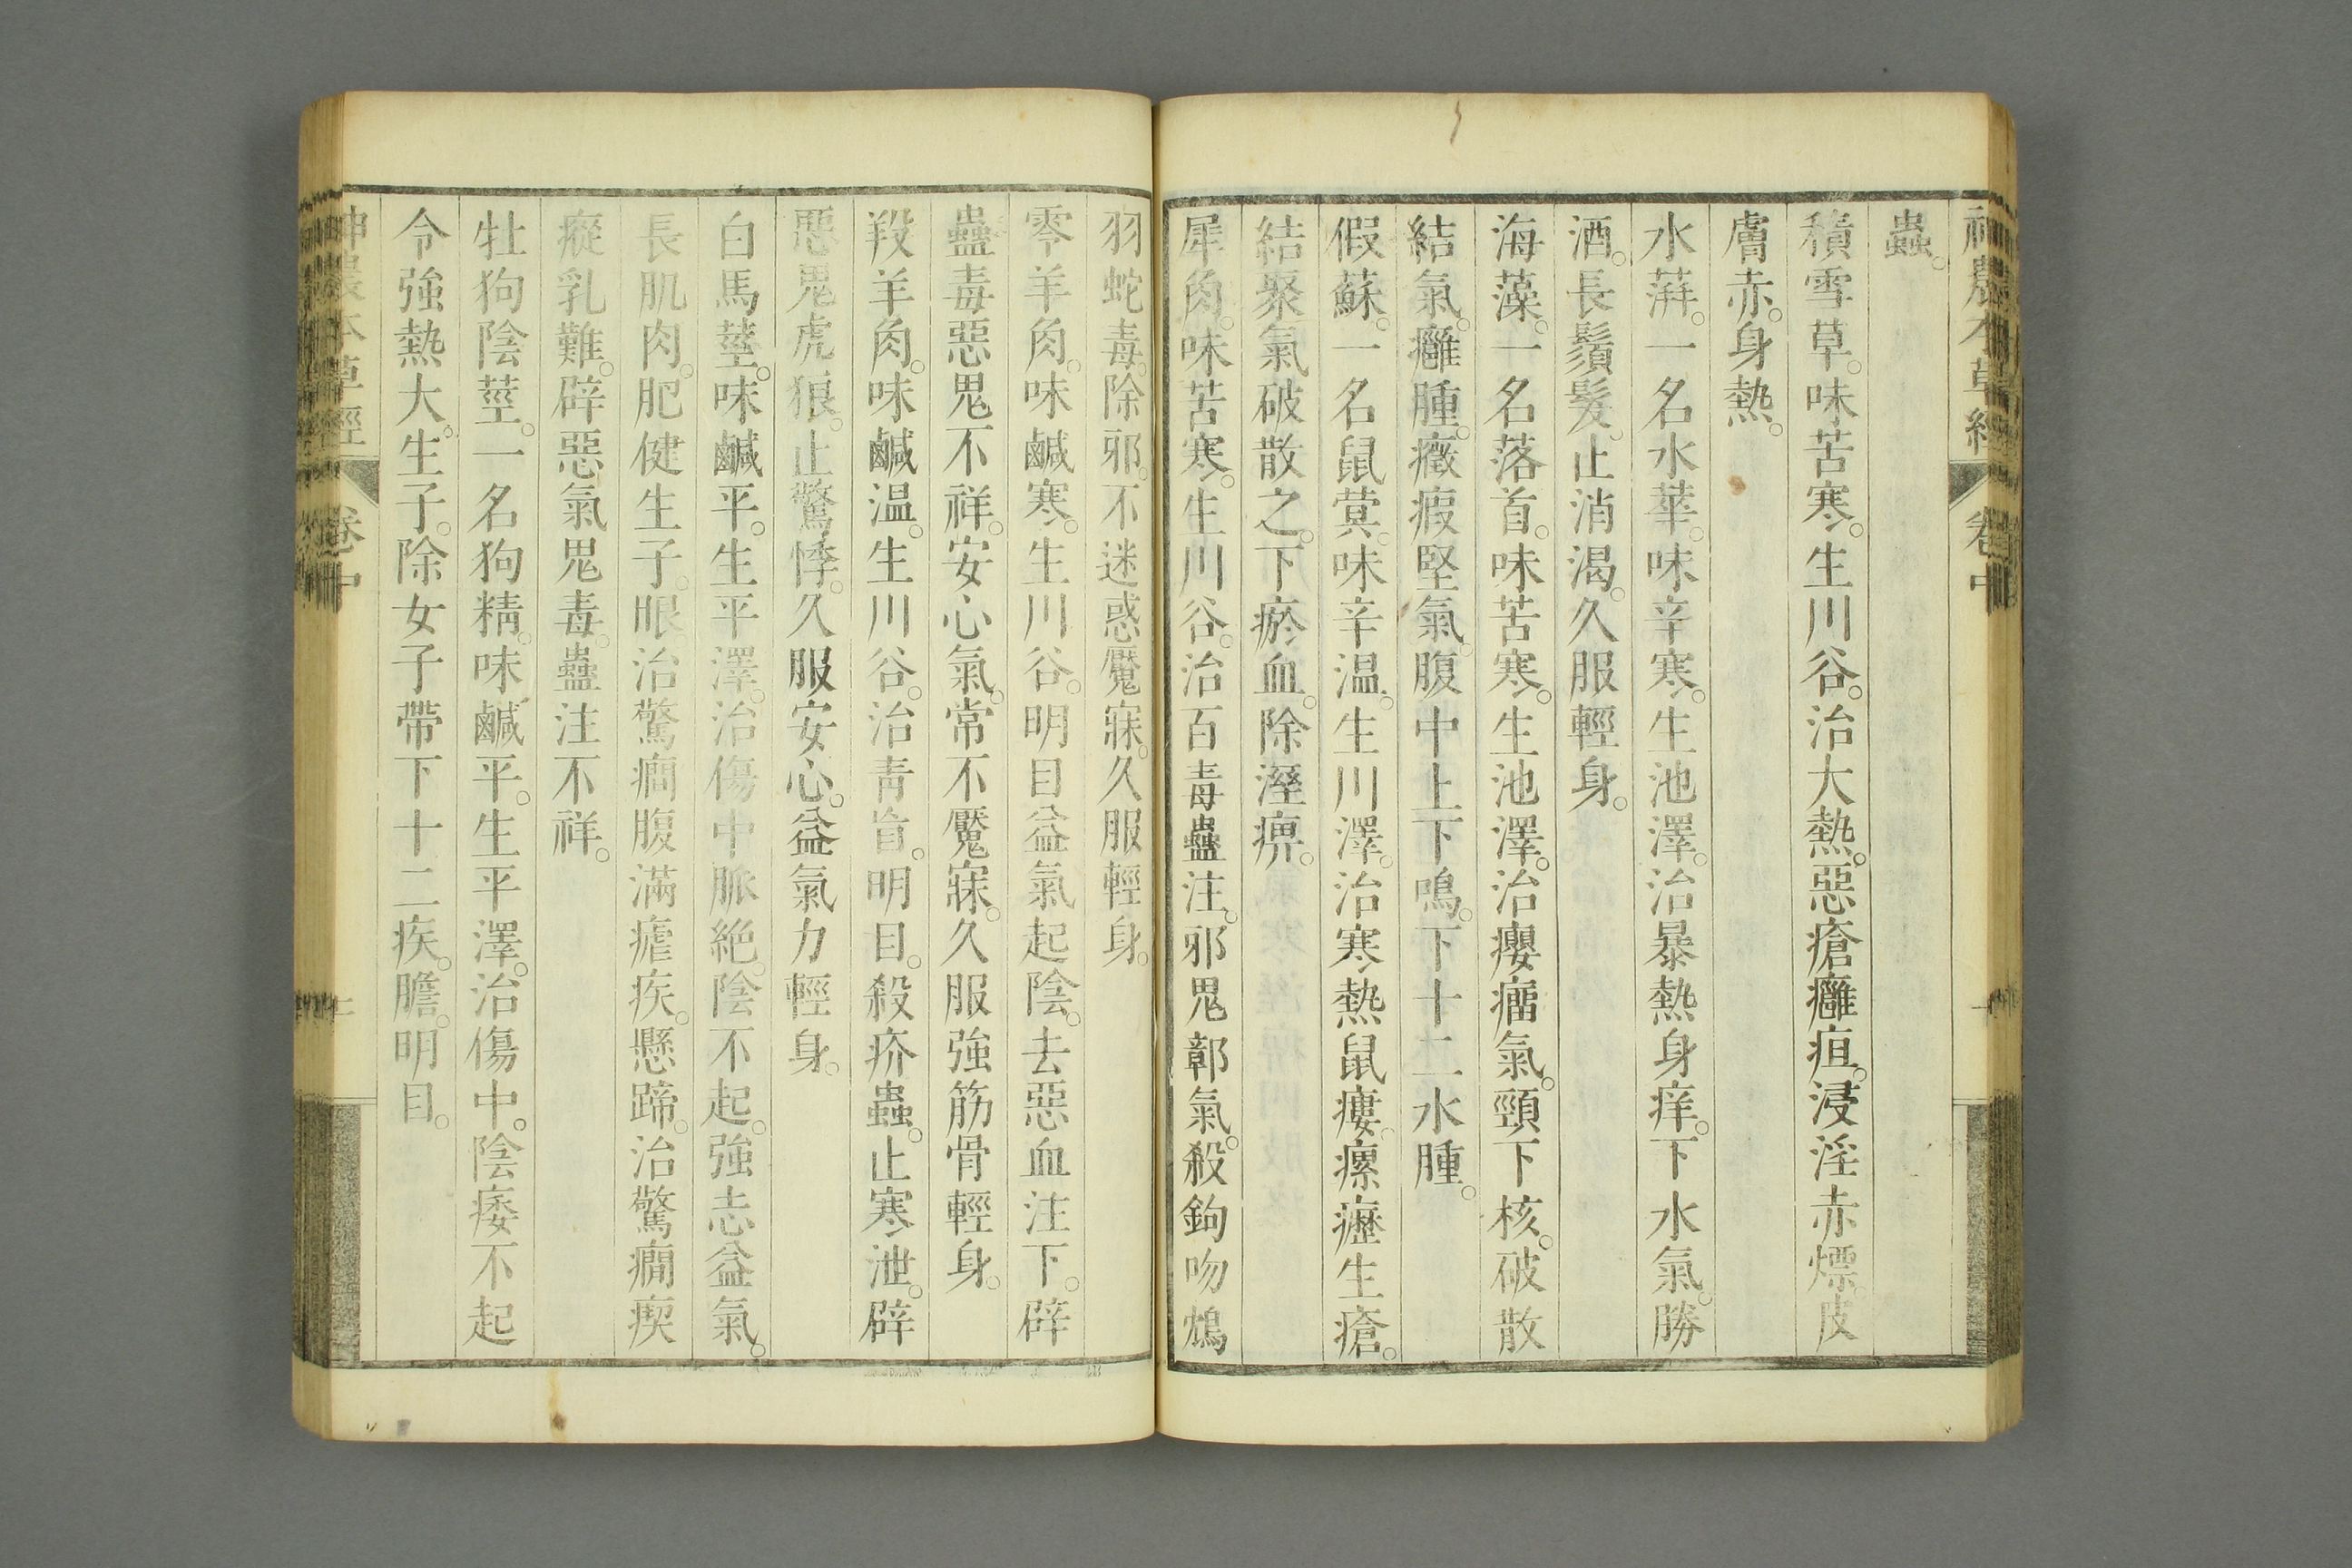 神農本草經 卷中
蟲。
積雪草。味苦寒。生川谷。治大熱。惡瘡癰疽。浸淫赤熛。皮
膚赤。身熱。
水萍。一名水華。味辛寒。生池澤。治暴熱身痒。下水氣。勝
酒。長鬚髮。止消渴。久服輕身。
海藻。一名落首。味苦寒。生池澤。治癭瘤氣。頸下核。破散
結氣。癰腫。癥瘕堅氣。腹中上下鳴。下十二水腫。
假蘇。一名鼠蓂。味辛温。生川澤。治寒熱鼠瘻。瘰癧生瘡。
結聚氣破散之。下瘀血。除溼痹。
犀角。味苦寒。生川谷。治百毒蠱注。邪鬼鄣氣。殺鉤吻鴆
羽蛇毒。除邪。不迷惑魘寐。久服輕身。
零羊角。味鹹寒。生川谷。明目益氣起陰。去惡血注下。辟
蠱毒惡鬼不祥。安心氣。常不魘寐。久服強筋骨輕身。
羖羊角。味鹹温。生川谷。治青盲。明目。殺疥蟲。止寒泄。辟
惡鬼虎狼。止驚悸。久服安心。益氣力輕身。
白馬莖。味鹹平。生平澤。治傷中脈絕。陰不起。強志益氣。
長肌肉。肥健生子。眼治驚癇腹滿瘧疾。懸蹄。治驚癇瘈
瘲乳難。辟惡氣鬼毒。蠱注不祥。
牡狗陰莖。一名狗精。味鹹平。生平澤。治傷中。陰痿不起
令強熱大。生子。除女子帶下十二疾。膽。明目。
神農本草經 卷中